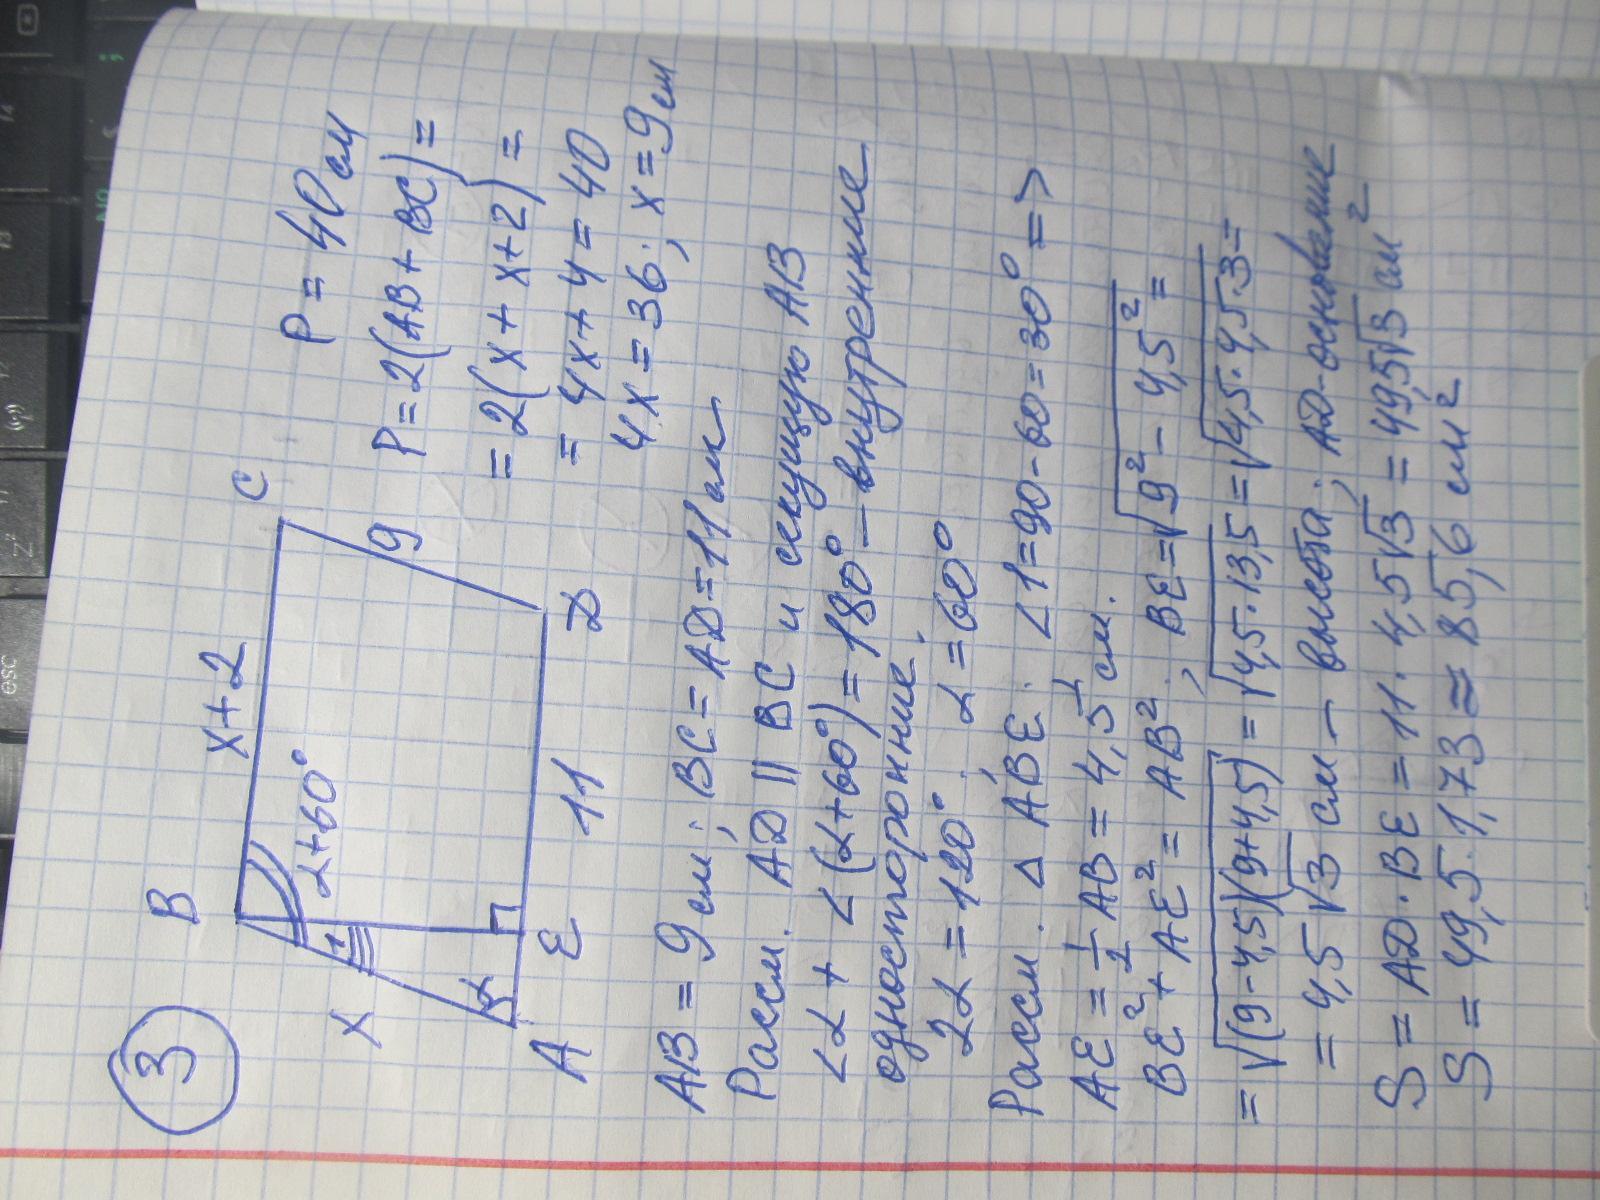 3
B
x+2
C
x
1
α+60°
9
α
A
E
11
D
P = 40 см
P = 2(AB + BC) =
= 2(x + x+2) =
= 4x + 4 = 40
4x = 36; x = 9 см
AB = 9 см; BC = AD = 11 см
Рассм. AD || BC и секущую AB
∠α + ∠(α+60°) = 180° – внутренние
односторонние.
2α = 120°. α = 60°
Рассм. Δ ABE. ∠1 = 90-60 = 30° =>
AE = 1/2 AB = 4,5 см.
BE² + AE² = AB²; BE = √(9² - 4,5²) =
= √((9-4,5)(9+4,5)) = √(4,5·13,5) = √(4,5·4,5·3) =
= 4,5√3 см – высота; AD-основание
S = AD·BE = 11·4,5√3 = 49,5√3 см²
S = 49,5·1,73 ≈ 85,6 см²
esc
Z